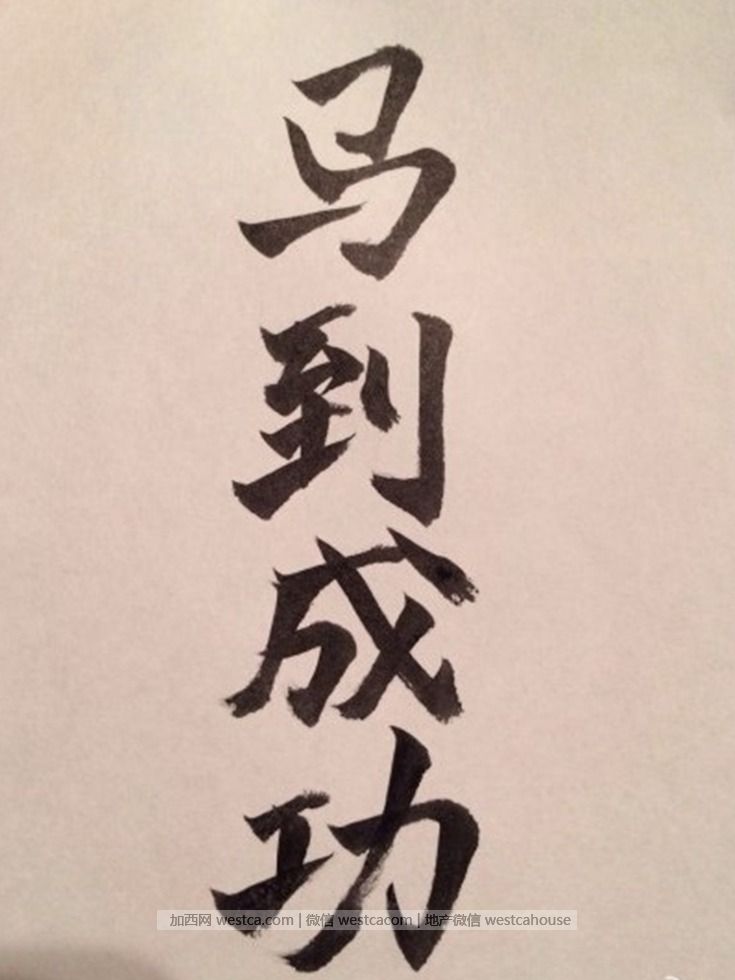 马到成功
加西网 westca.com | 微信 westcacom | 地产微信 westcahouse